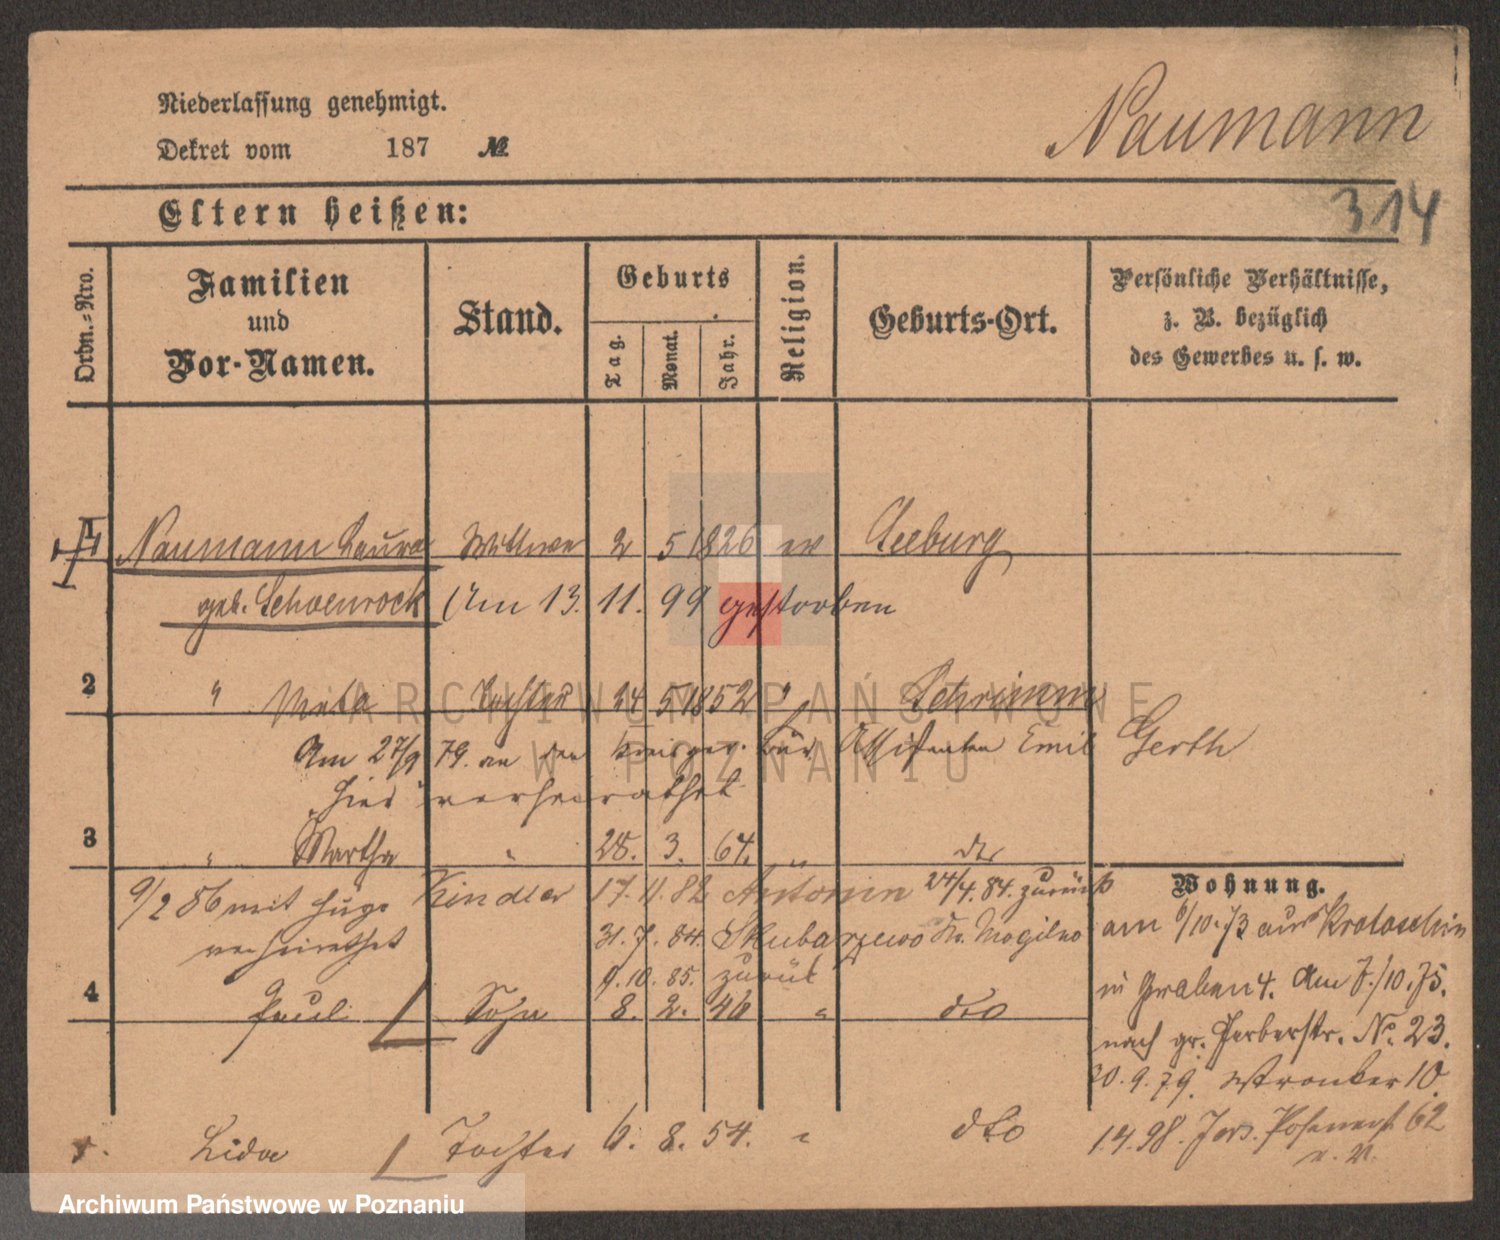 Niederlassung genehmigt.
Dekret vom 187 №
Naumann
314
Eltern heißen:
Ordn.-Nro.
Familien und Vor-Namen.
Stand.
Geburts
Tag.
Monat.
Jahr.
Religion.
Geburts-Ort.
Persönliche Verhältnisse, z. B. bezüglich des Gewerbes u. s. w.
1 Naumann Laura Wittwe 2 5 1826 ev Seeburg
geb. Schoenrock Am 13. 11. 99 gestorben
2 " Meta Tochter 24 5 1852 " Schrimm
Am 27/9 79. an den Kreisger. Bür. Assistenten Emil Gerth
hier verheirathet
3 " Martha " 28. 3. 64. " dto
9/2 86 mit Hugo Kindler 17. 11. 82 Antonin 24/4. 84. zurück
verheirathet 31. 7. 84. Skubarzewo Kr. Mogilno
9. 10. 85. zurück
4 Paul Sohn 8. 2. 46 " dto
Lida Tochter 6. 8. 54. " dto
Wohnung.
am 6/10. 73 aus Krotoschin
in Graben 4. Am 7./10. 75.
nach gr. Gerberstr. No. 23.
20. 9. 79. Wronker 10.
1.4.98. Jers. 62
ARCHIWUM PAŃSTWOWE
W POZNANIU
Archiwum Państwowe w Poznaniu